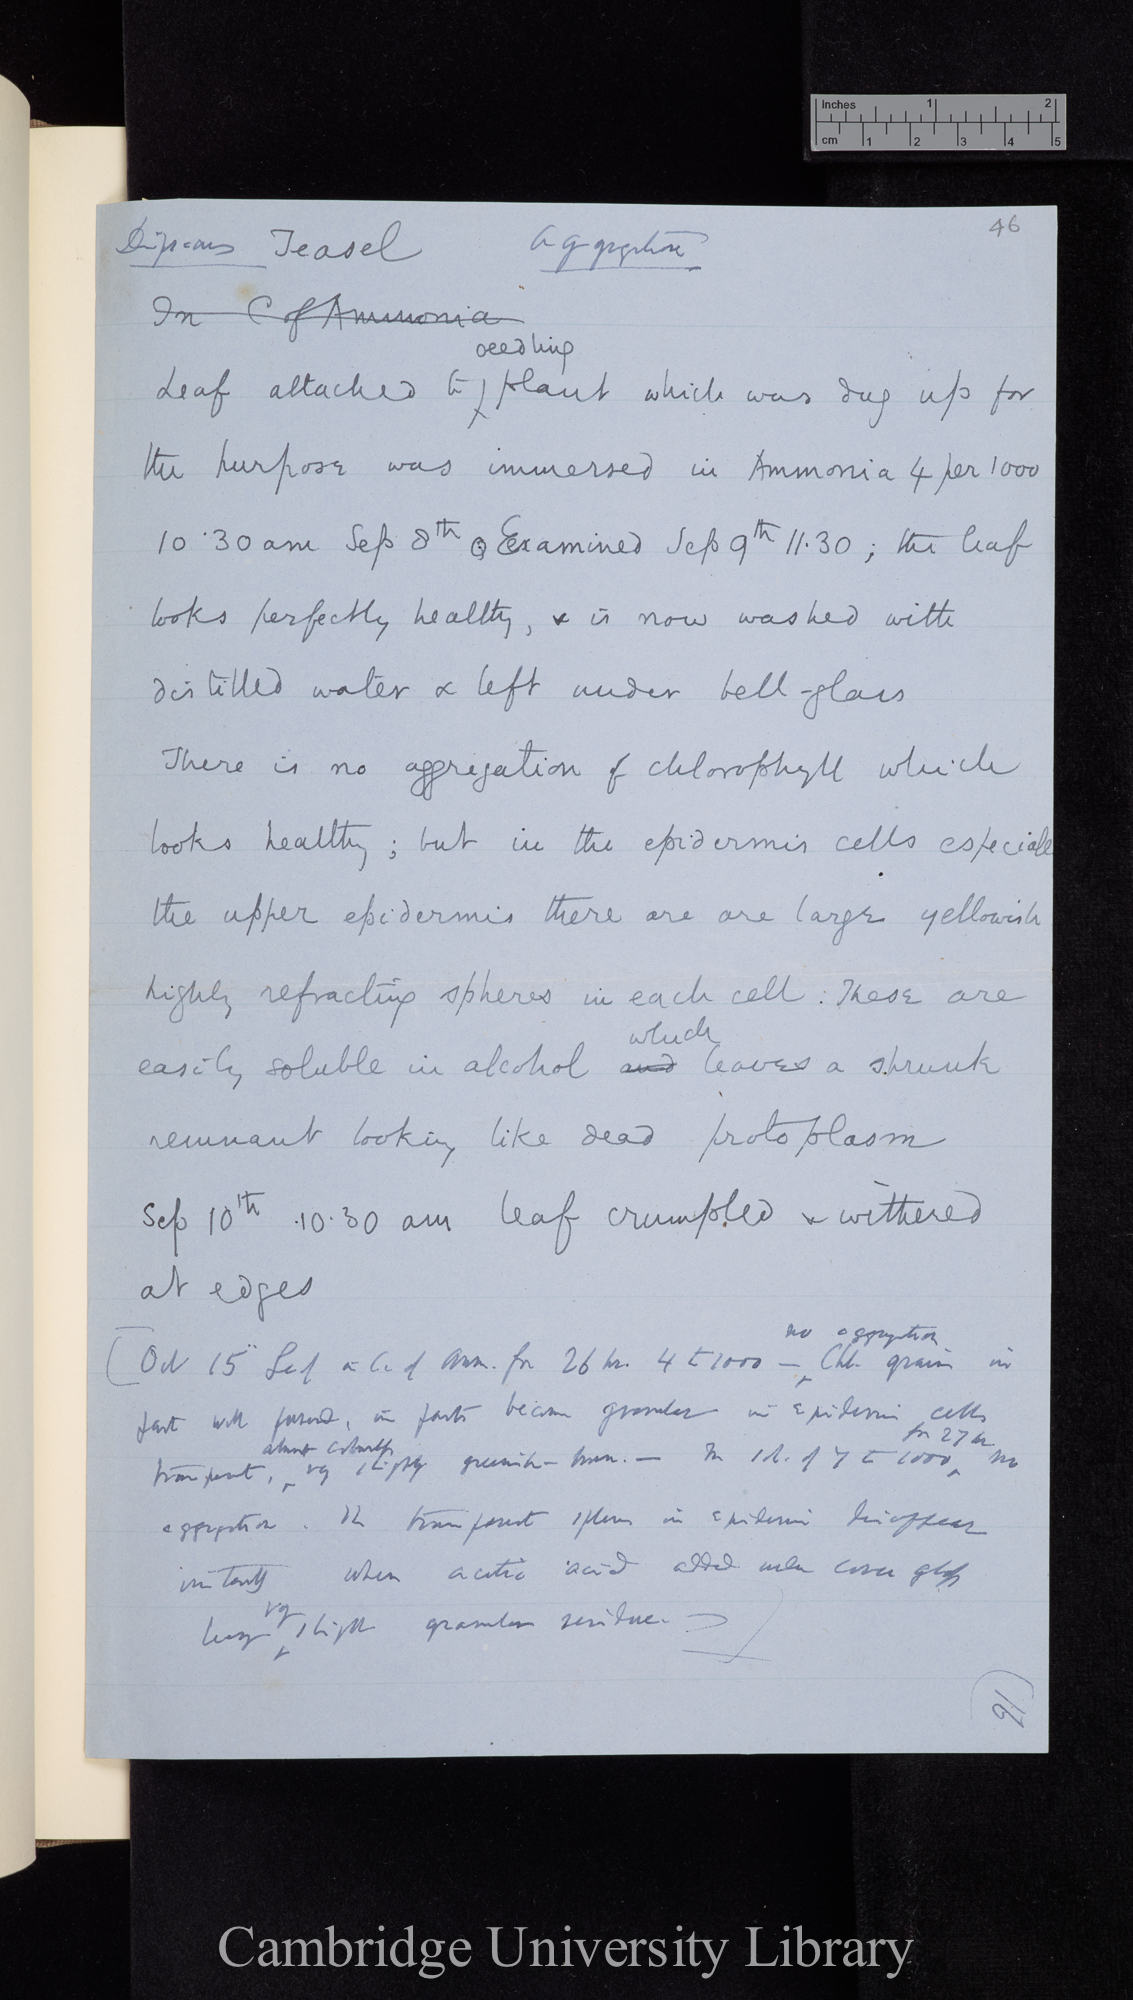 Inches 1 2
cm 1 2 3 4 5
46
Dipsacus Teasel Aggregation
In C of Ammonia
seedling
Leaf attached to plant which was dug up for
the purpose was immersed in Ammonia 4 per 1000
10.30 am Sep 8th Examined Sep 9th 11.30; the leaf
looks perfectly healthy, & is now washed with
distilled water & left under bell-glass
There is no aggregation of chlorophyll which
looks healthy; but in the epidermis cells especiall
the upper epidermis there are are large yellowish
highly refracting spheres in each cell: These are
which
easily soluble in alcohol and leaves a shrunk
remnant looking like dead protoplasm
Sep 10th 10.30 am leaf crumpled & withered
at edges
no aggregation
Oct 15 Leaf in C. of Amm. for 26 hr. 4 to 1000 — Chl. grains in
part well formed, in parts become granular in epidermis cells
for 27 hr
transparent, greenish-brown. — In sol. of 7 to 1000 no
aggregation. The transparent spheres in epidermis disappear
instantly when acetic acid added under cover glass
vy
leaving slight granular residue.
16
Cambridge University Library